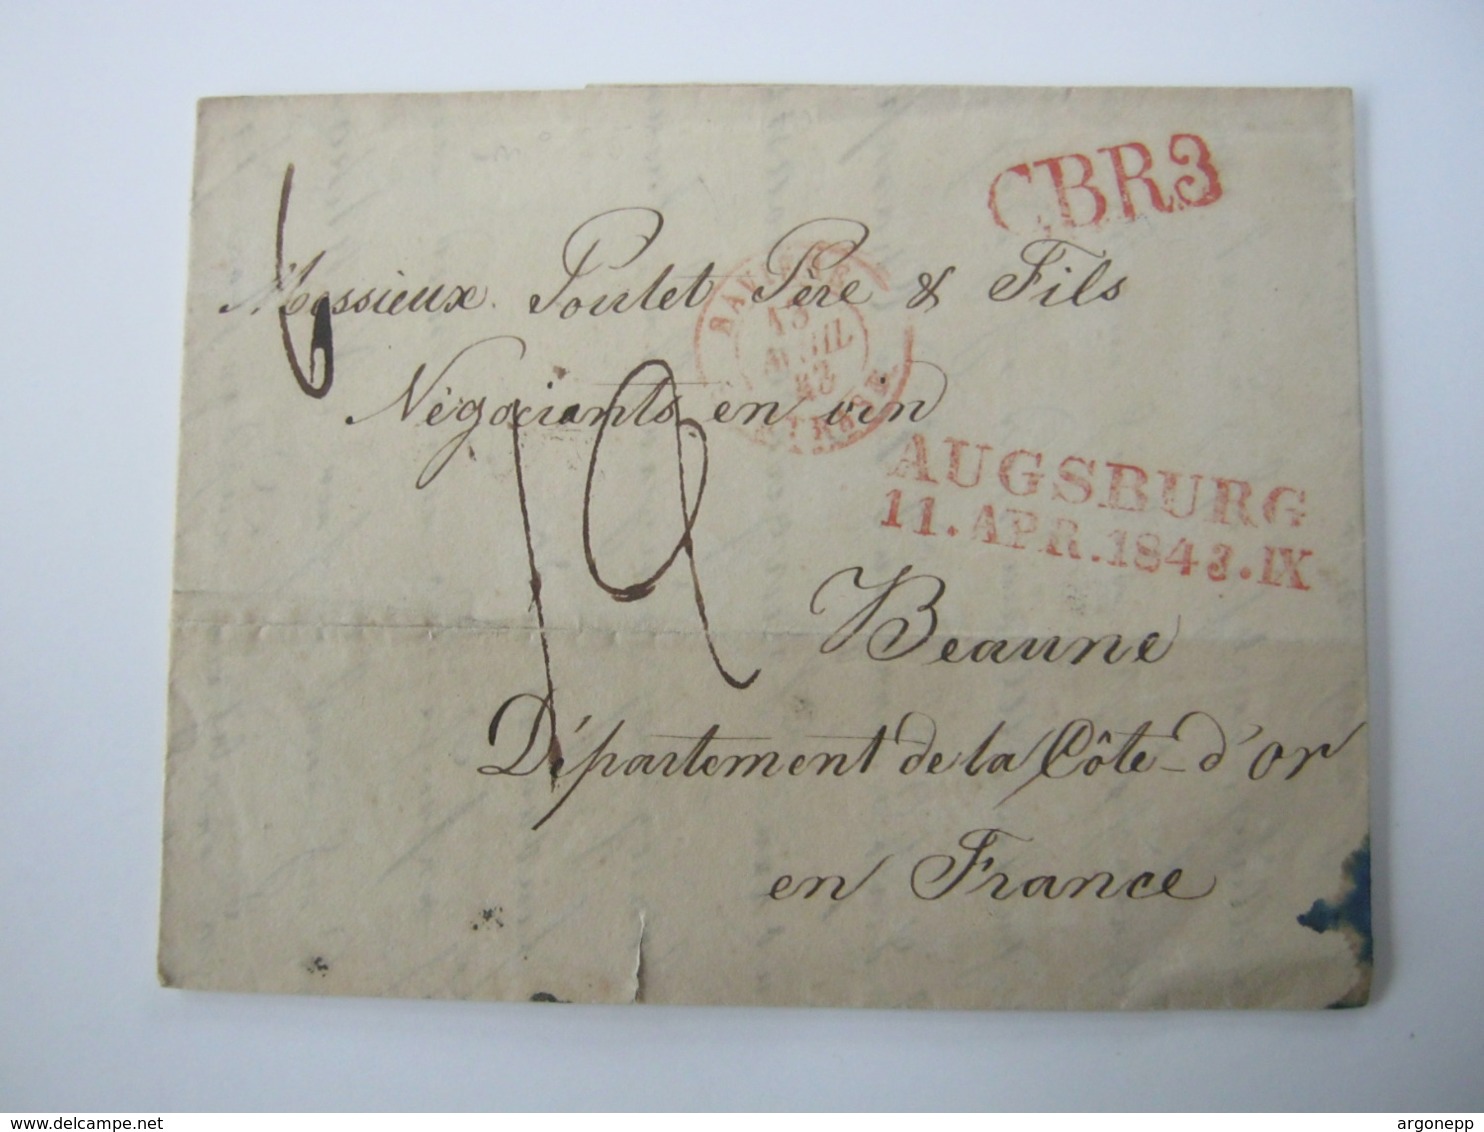 CBR3
6
Messieux Poulet Père & Fils
BAVIÈRE
13
AVRIL
43
STRASB
Négociants en vin
19
AUGSBURG
11. APR. 1843. IX
Beaune
Département de la Côte-d'or
en France
delcampe.net
argonepp